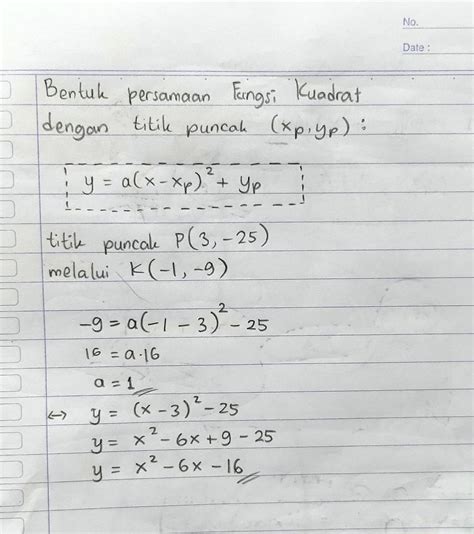 No.
Date :
Bentuk persamaan Fungsi Kuadrat
dengan titik puncak (xₚ, yₚ) :
y = a(x - xₚ)² + yₚ
titik puncak P(3, -25)
melalui K(-1, -9)
-9 = a(-1 - 3)² - 25
16 = a.16
a = 1
↔ y = (x - 3)² - 25
y = x² - 6x + 9 - 25
y = x² - 6x - 16